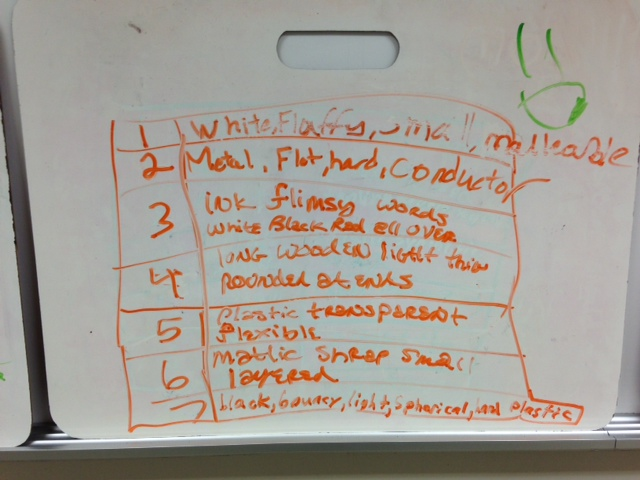 1 White, Fluffy, small, malleable
2 Metal, Flat, hard, Conductor
3 ink flimsy words
White Black Red all over
4 long wooden light thin
rounded at ends
5 Plastic transparent
flexible
6 matlic shrap small
layered
7 black, bouncy, light, spherical, hard plastic